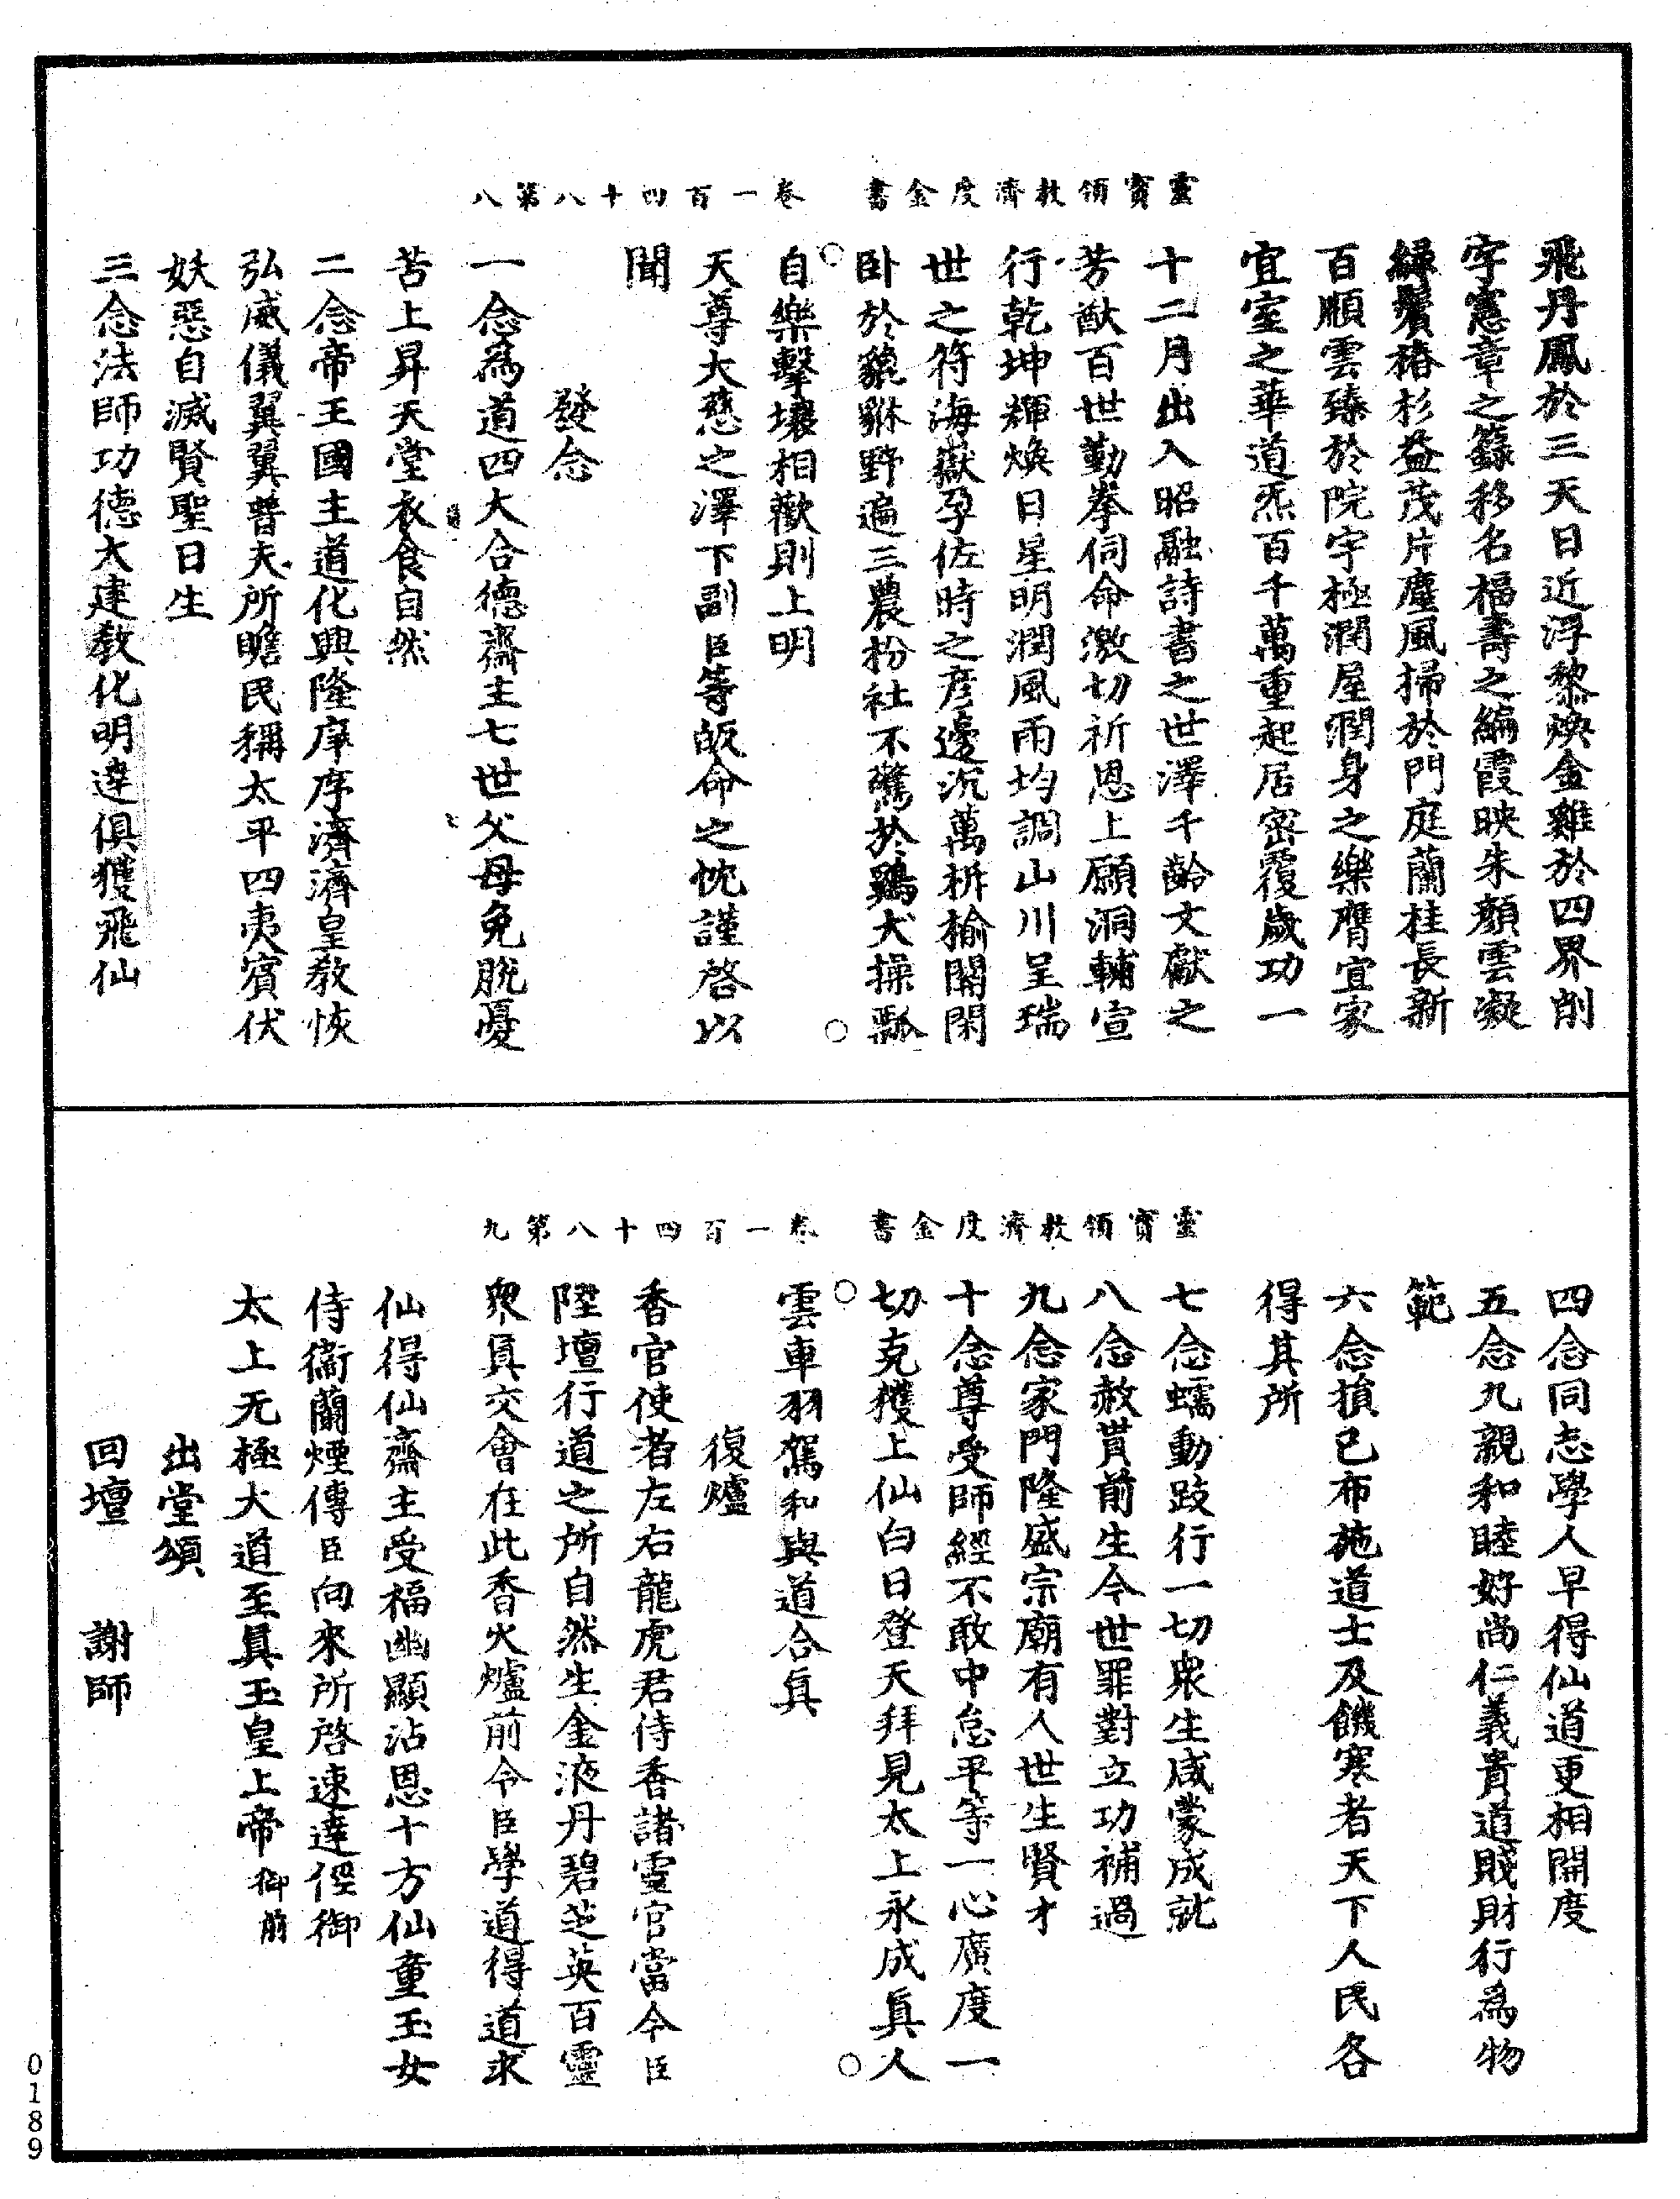 靈寶領教濟度金書　卷一百四十八第八
飛丹鳳於三天日近浮黎煥金雞於四界削
字憲章之籙移名福壽之編霞映朱顏雲凝
綠鬢椿杉益茂片塵風掃於門庭蘭桂長新
百順雲臻於院宇極潤屋潤身之樂膺宜家
宜室之華道炁百千萬重起居密覆歲功一
十二月出入昭融詩書之世澤千齡文獻之
芳猷百世勤拳伺命激切祈恩上願洞輔宣
行乾坤輝煥日星明潤風雨均調山川呈瑞
世之符海嶽孕佐時之彥邊沉萬柝榆關閑
卧於貔貅野遍三農枌社不驚於鷄犬操瓢
自樂擊壤相歡則上明
天尊大慈之澤下副臣等皈命之忱謹啓以
聞
發念
一念為道四大合德齋主七世父母免脫憂
苦上昇天堂衣食自然
二念帝王國主道化興隆庠序濟濟皇教恢
弘威儀翼翼普天所瞻民稱太平四夷賓伏
妖惡自滅賢聖日生
三念法師功德大建教化明達俱獲飛仙
靈寶領教濟度金書　卷一百四十八第九
四念同志學人早得仙道更相開度
五念九親和睦好尚仁義貴道賤財行為物
範
六念損己布施道士及饑寒者天下人民各
得其所
七念蠕動跂行一切衆生咸蒙成就
八念赦貰前生今世罪對立功補過
九念家門隆盛宗廟有人世生賢才
十念尊受師經不敢中怠平等一心廣度一
切克獲上仙白日登天拜見太上永成真人
雲車羽駕和與道合真
復爐
香官使者左右龍虎君侍香諸靈官當令臣
陞壇行道之所自然生金液丹碧芝英百靈
衆真交會在此香火爐前令臣學道得道求
仙得仙齋主受福幽顯沾恩十方仙童玉女
侍衞蘭煙傳臣向來所啓速達徑御
太上无極大道至真玉皇上帝御前
出堂頌
回壇　謝師
0189